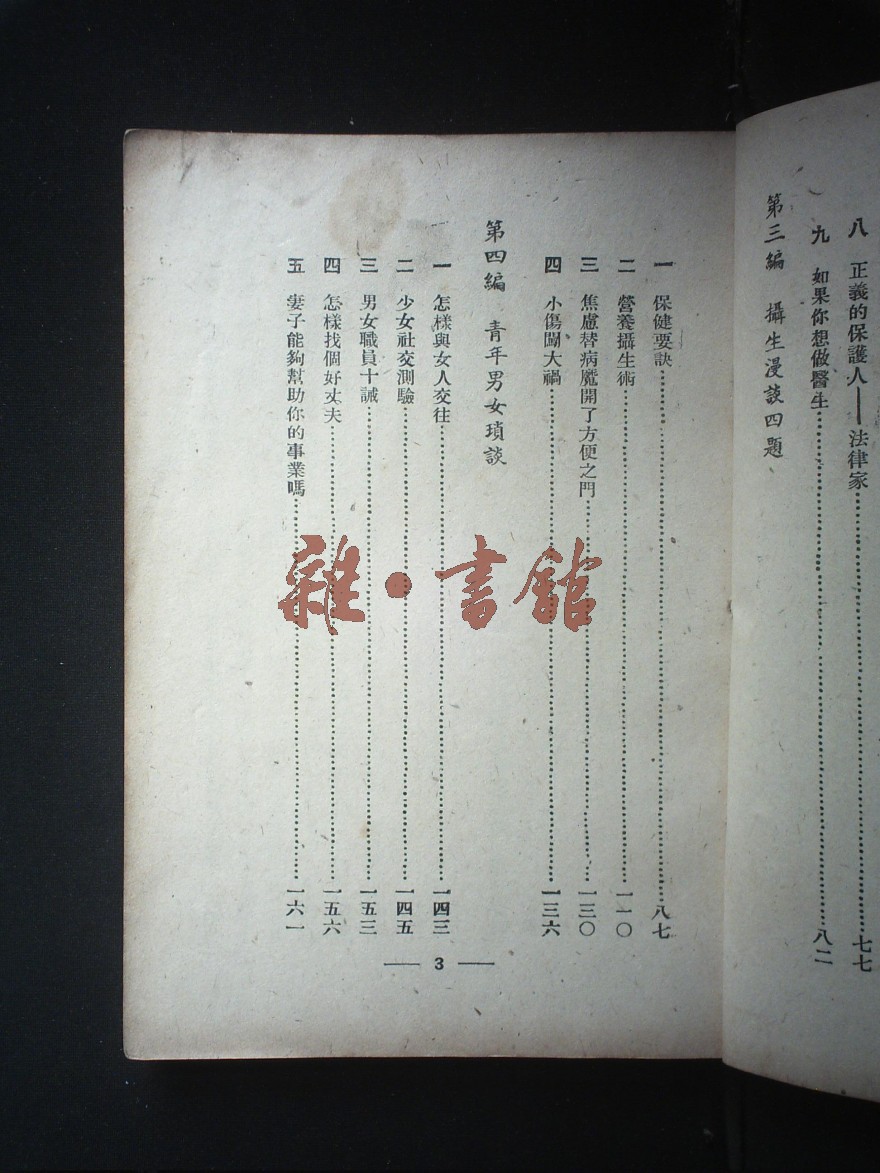 八 正義的保護人——法律家……七七
九 如果你想做醫生……八二
第三編 攝生漫談四題
一 保健要訣……八七
二 營養攝生術……一一〇
三 焦慮替病魔開了方便之門……一三〇
四 小傷闖大禍……一三六
第四編 青年男女瑣談
一 怎樣與女人交往……一四三
二 少女社交測驗……一四五
三 男女職員十誡……一五三
四 怎樣找個好丈夫……一五六
五 妻子能夠幫助你的事業嗎……一六一
— 3 —
雜·書館